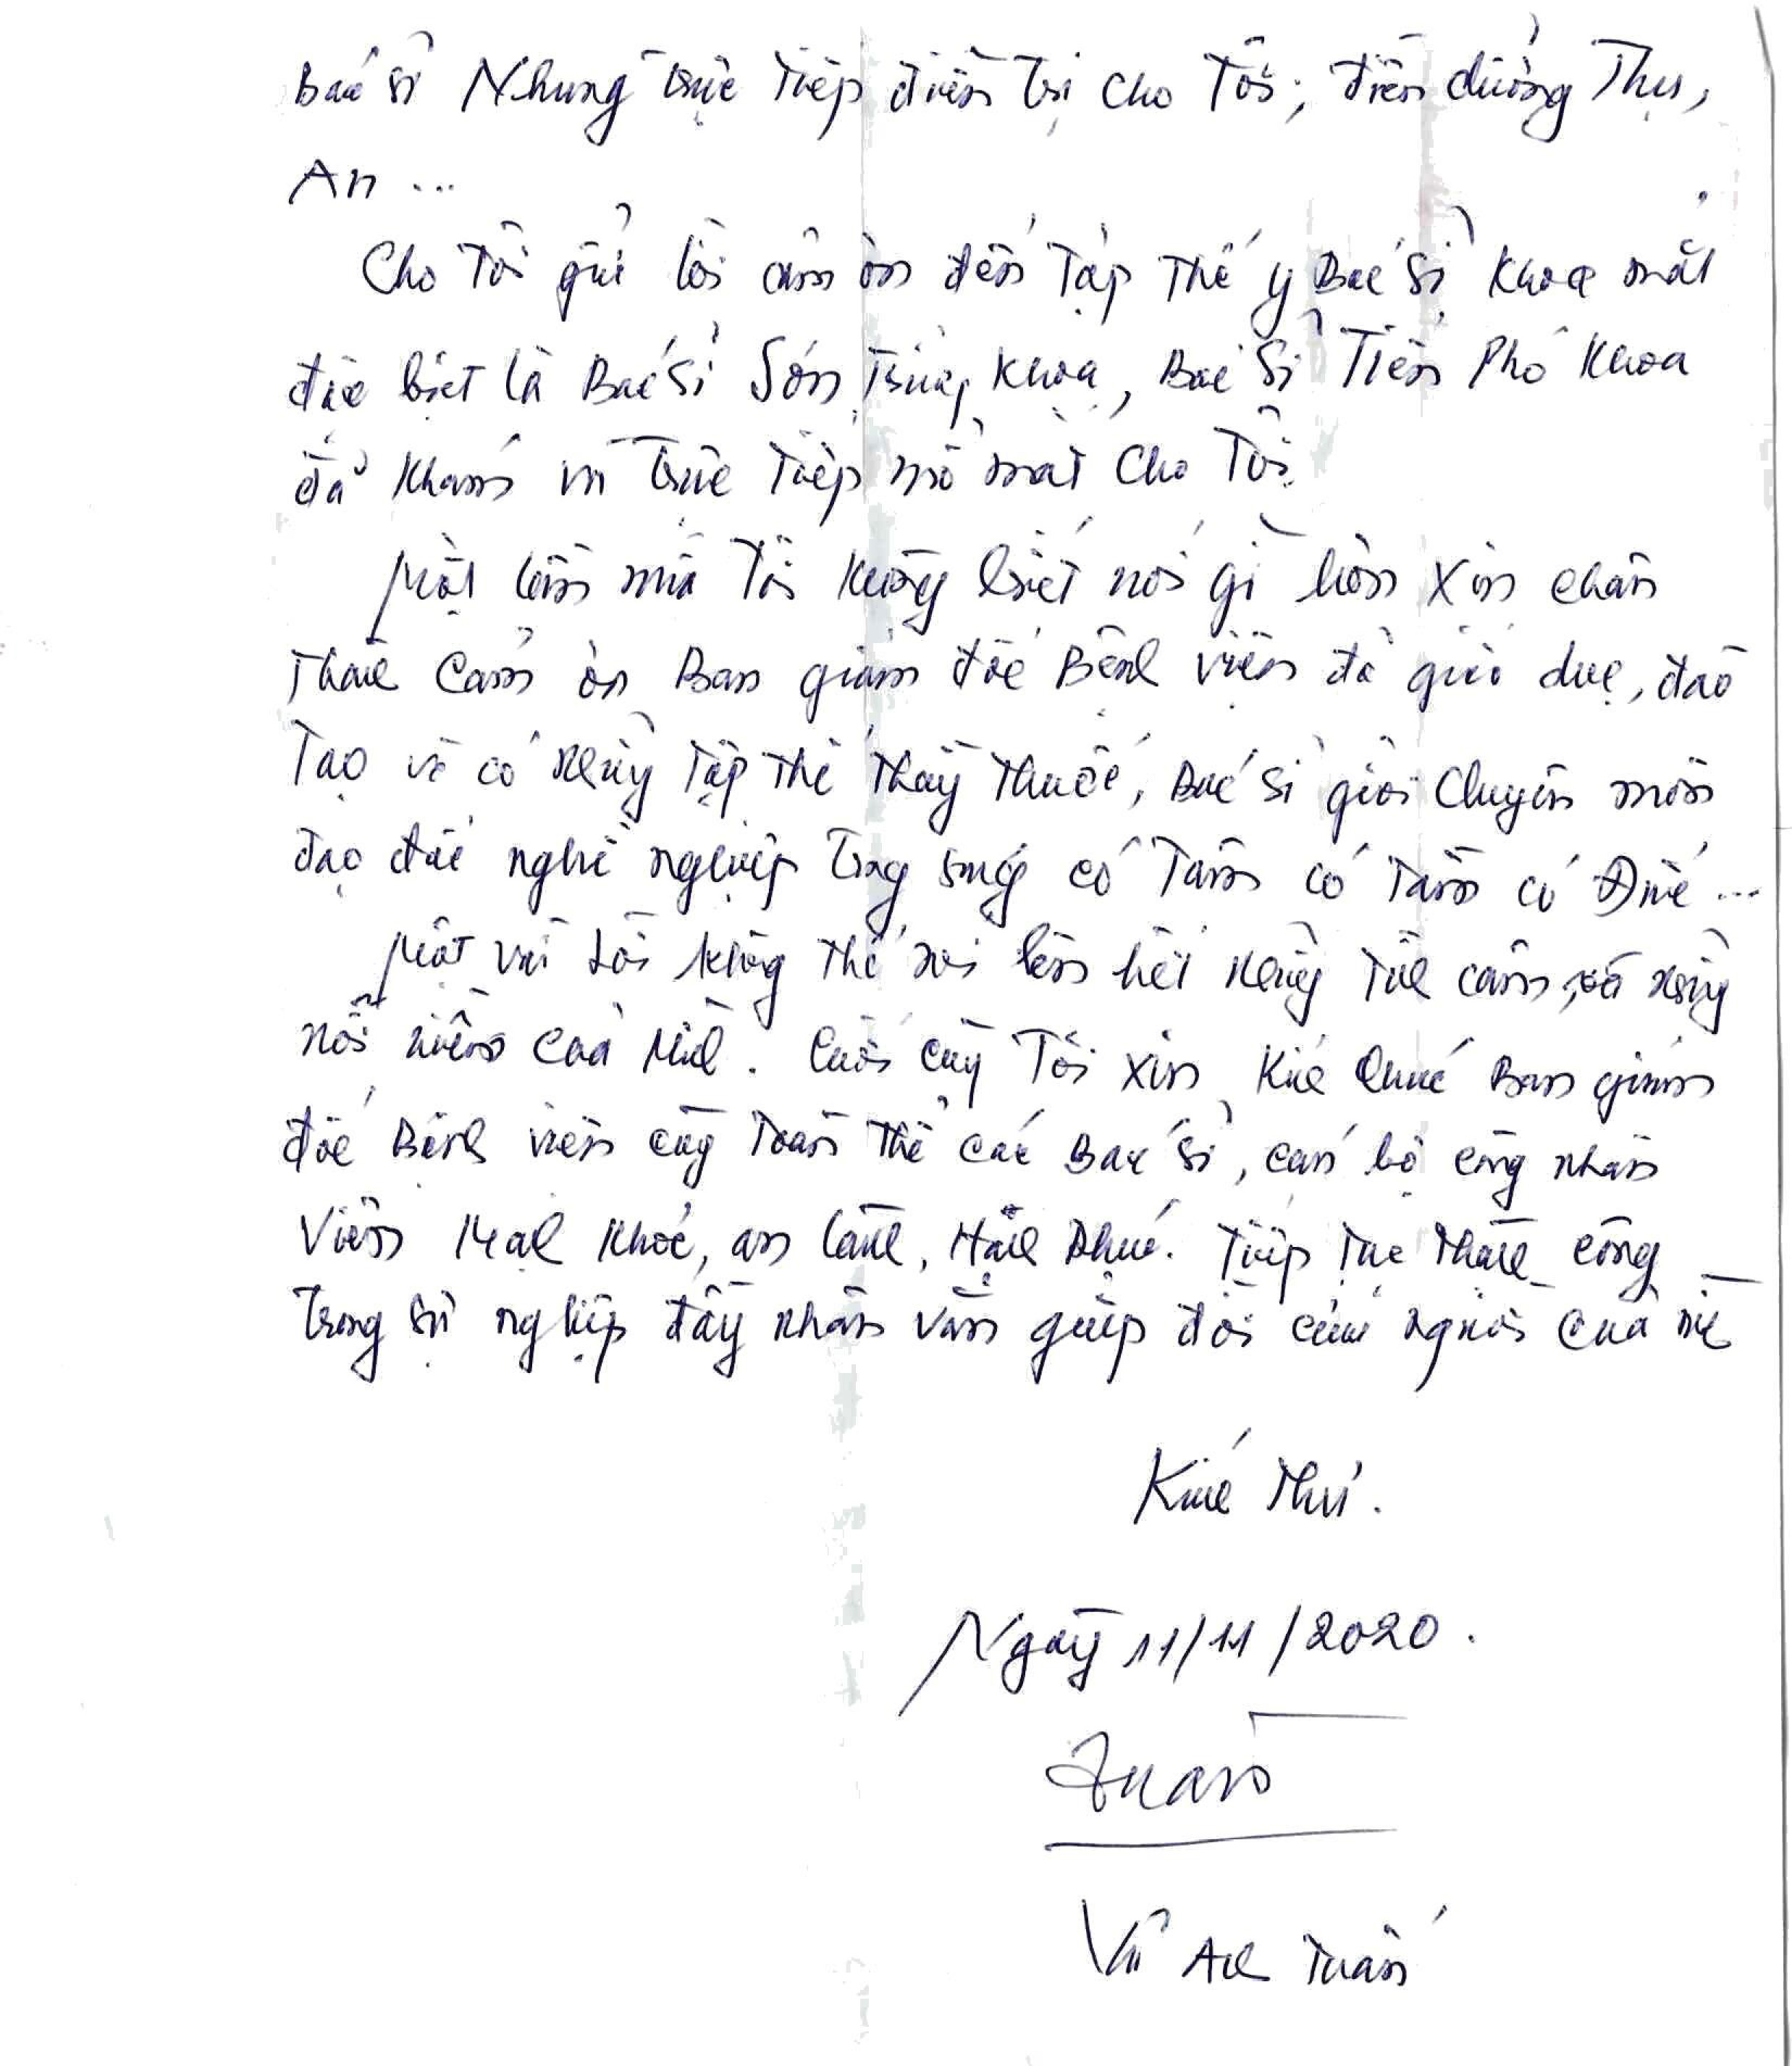 Bác sĩ Nhung trực tiếp điều trị cho tôi; điều dưỡng Thu,
An ...
Cho tôi gửi lời cảm ơn đến tập thể y Bác sĩ khoa mắt
đặc biệt là Bác sĩ Sơn Trưởng khoa, Bác sĩ Tiến Phó khoa
đã khám và trực tiếp mổ mắt cho tôi.
Một lần nữa tôi không biết nói gì hơn xin chân
thành cảm ơn Ban giám đốc Bệnh viện đã giáo dục, đào
tạo và có những tập thể thầy thuốc, Bác sĩ giỏi chuyên môn
đạo đức nghề nghiệp trong sáng có Tâm có Tầm có Đức ...
Một vài lời không thể nói lên hết những tình cảm và những
nỗi niềm của mình. Cuối cùng Tôi xin kính chúc Ban giám
đốc Bệnh viện cùng toàn thể các Bác sĩ, cán bộ công nhân
viên Mạnh khỏe, an lành, Hạnh phúc. Tiếp tục thành công
trong sự nghiệp đầy nhân văn giúp đời cứu người của mình
Kính thư.
Ngày 11/11/2020.
Tuấn
Vũ Anh Tuấn